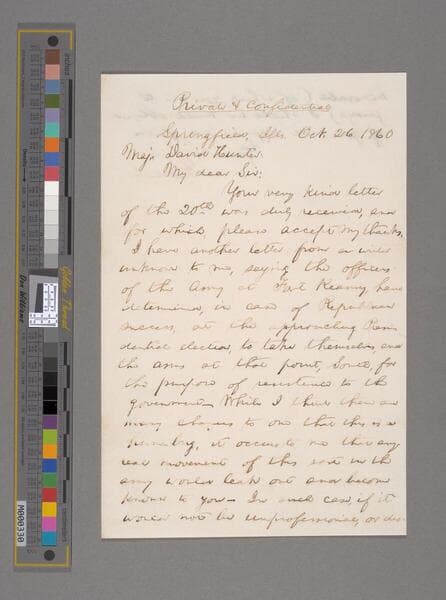 Private & Confidential
Springfield, Ills. Oct. 26. 1860
Maj. David Hunter
My dear Sir:
Your very kind letter
of the 20th was duly received, and
for which, please accept my thanks.
I have another letter, from a writer
unknown to me, saying the officers
of the Army at Fort Kearny, have
determined, in case of Republican
success, at the approaching Presi-
dential election, to take themselves, and
the arms at that point, South, for
the purpose of resistence to the
government. While I think there are
many chances to one that this is a
humbug, it occurs to me that any
real movement of this sort in the
army would leak out and become
known to you. In such case, if it
would not be unprofessional, or dis-
inches
centimeters
Golden Thread
Don Williams
M000330